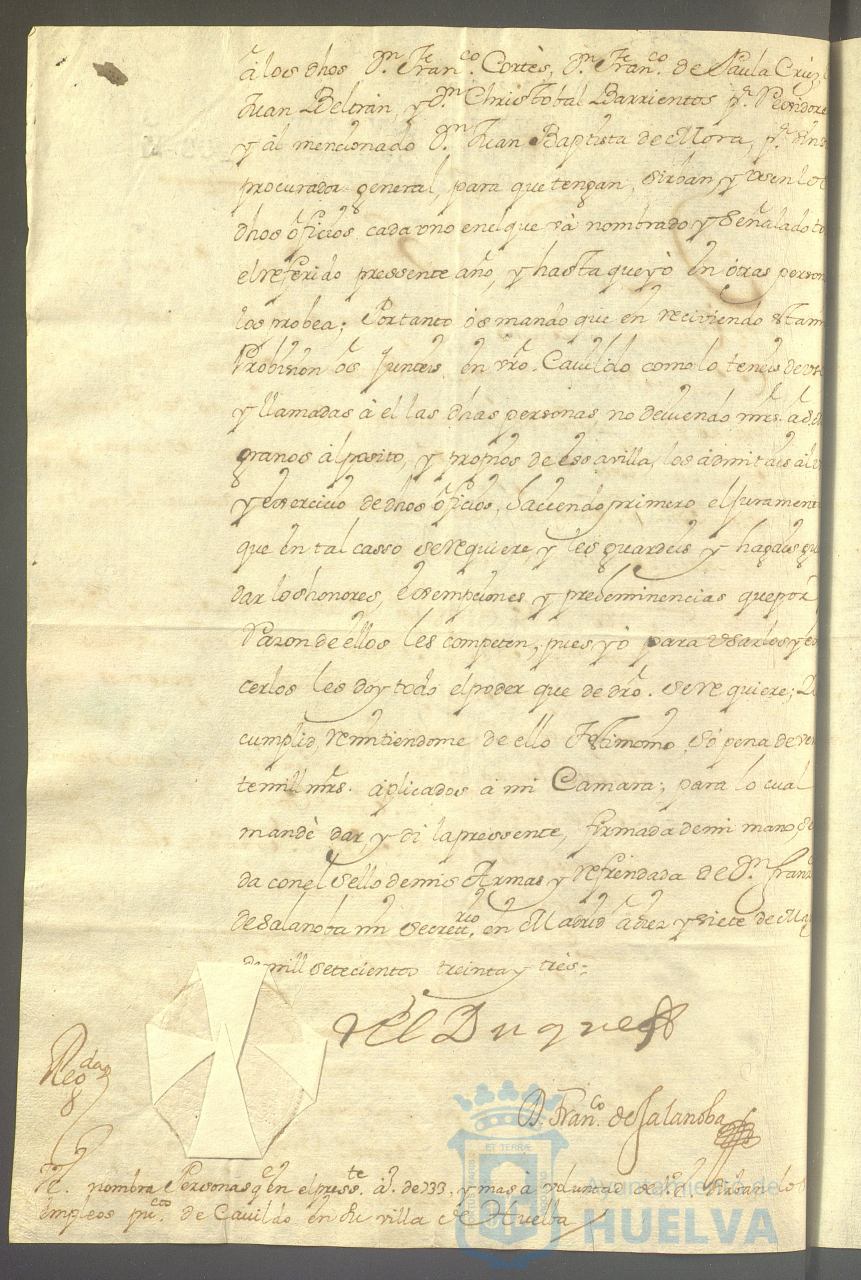 â los dhos Dn. Franco. Cortès, Dn. Franco. de Paula Cruz,
Juan Beltràn, y Dn. Christobal Barrientos pa. Rexidore
y âl mencionado Dn. Juan Baptista de Mora, pa.
procurador general, para que tengan, sirban y Usen los
dhos ôficios cada uno en el que và nombrado y señalado to
el referido pressente año, y hasta que yò en òtras person
los probea; Por tanto ôs mando que en reciviendo esta m
Probision ôs Junteis en vro. Cavildo como lo teneis de
y llamadas â èl las dhas personas, no deviendo mrs. a
granos âl posito, y propios de essa villa, los âdmitais âl
y exsercicio de dhos ôficios, haciendo primero el juramen
que en tal casso se requiere, y les guardeis y hagais
dar los honores, exsempciones y preheminencias que por
Razon de ellos les competen, pues yò para usarlos y
cerlos les doy todo el poder que de dro. se requiere;
cumplid, remitiendome de ello testimonio, sò pena de
te mill mrs. aplicados à mi Camara; para lo cual
mandè dar, y di la pressente, firmada de mi mano,
da con el sello de mis Armas y refrendada de Dn. Fran
de Salanoba mi secretrio. en Madrid â diez y siete de Ma
de mill setecientos treinta y tres=
El Duque
Regda
8
D. Franco. de Salanoba
VE. nombra Personas qe. en el presste. â. de 733. y mas â voluntad de VE. sirban los
empleos de Cavildo en su villa de Huelba
ET TERRÆ
Ayuntamiento de
HUELVA